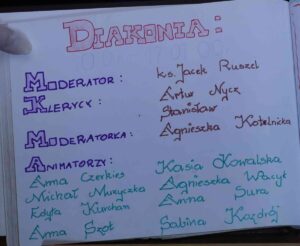 DIAKONIA:
MODERATOR: ks. Jacek Ruszel
KLERYCY: Artur Nycz
Stanisław
MODERATORKA: Agnieszka Kotelnicka
ANIMATORZY: Kasia Kowalska
Anna Czerkies Agnieszka Wacyk
Michał Muzyczka Anna Sura
Edyta Kurchan
Anna Szot Sabina Kozdrój